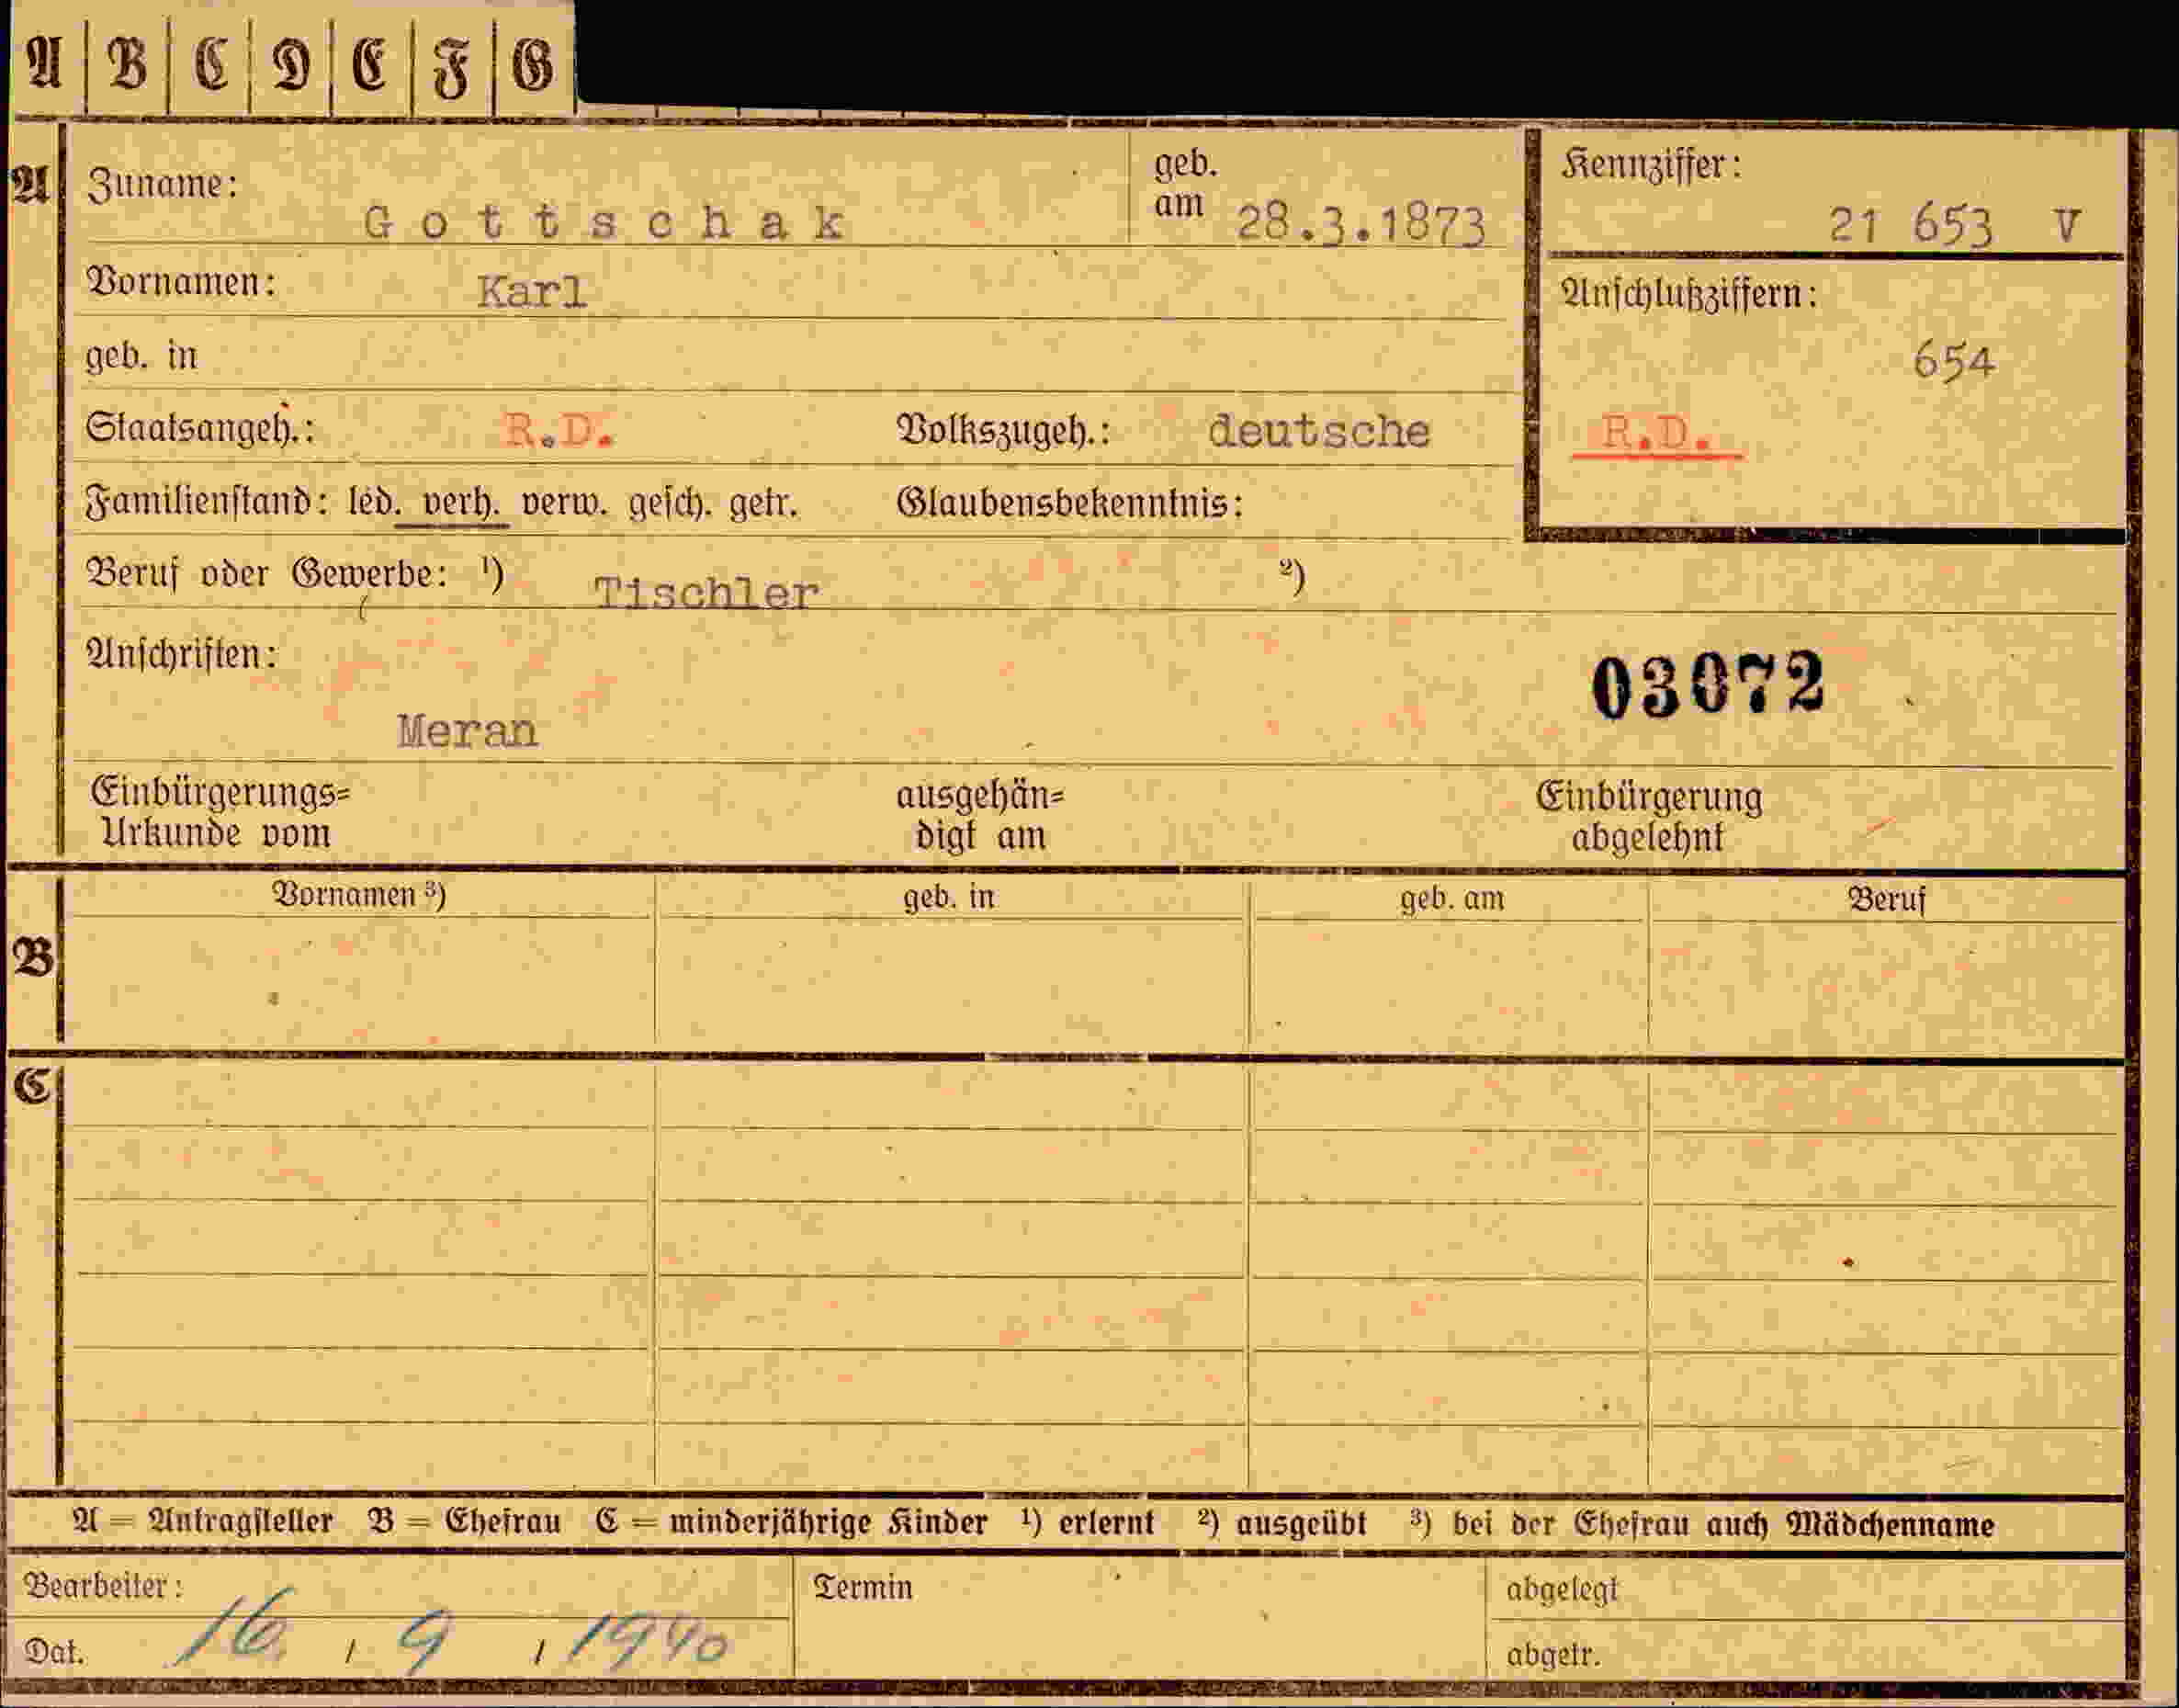 A B C D E F G
A Zuname: Gottschak geb. am 28.3.1873 Kennziffer: 21 653 V
Vornamen: Karl Anschlußziffern: 654
geb. in
Staatsangeh.: R.D. Volkszugeh.: deutsche R.D.
Familienstand: led. verh. verw. gesch. getr. Glaubensbekenntnis:
Beruf oder Gewerbe: ¹) Tischler ²)
Anschriften: 03072
Meran
Einbürgerungs= ausgehän= Einbürgerung
Urkunde vom digt am abgelehnt
Vornamen ³) geb. in geb. am Beruf
B
C
A = Antragsteller B = Ehefrau C = minderjährige Kinder ¹) erlernt ²) ausgeübt ³) bei der Ehefrau auch Mädchenname
Bearbeiter: Termin abgelegt
Dat. 16. / 9 / 1940 abgetr.